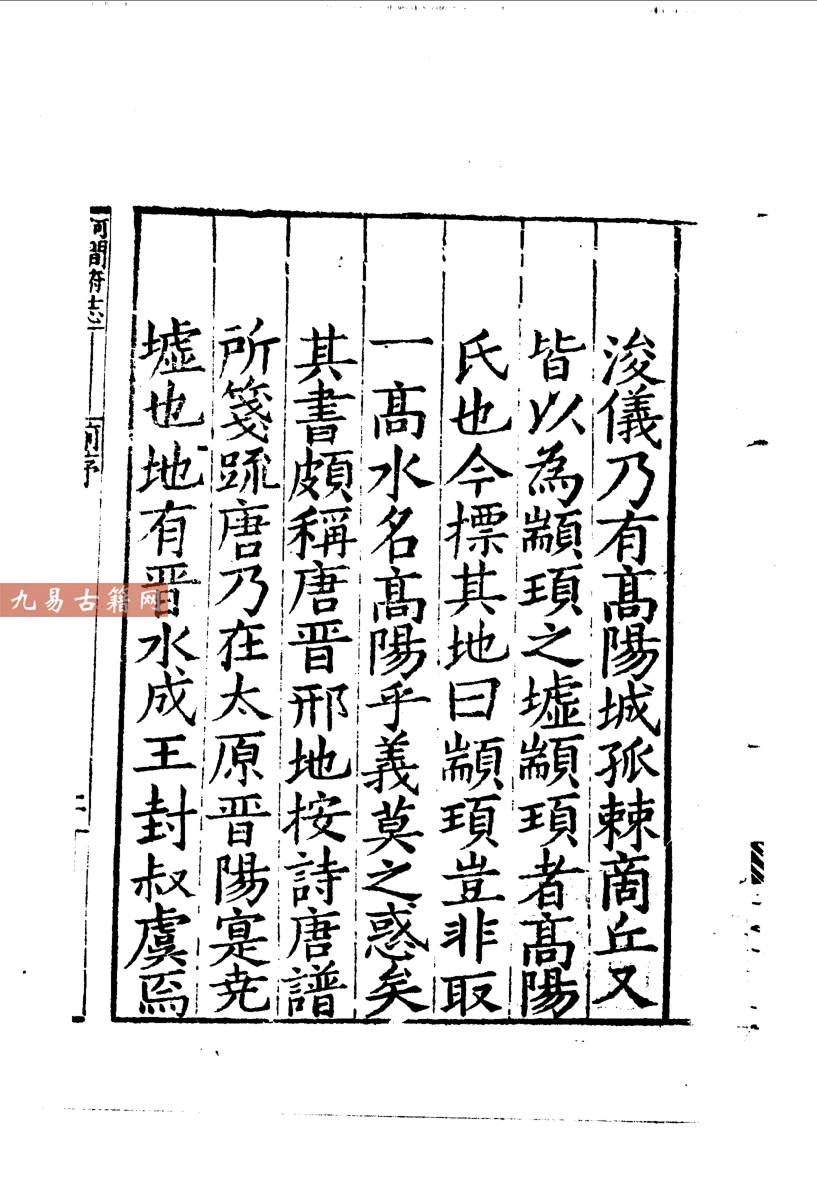 浚儀乃有髙陽城孤棘啇丘又
皆以為顓頊之墟顓頊者髙陽
氏也今摽其地曰顓頊豈非取
一髙水名髙陽乎義莫之惑矣
其書頗稱唐晋邢地按詩唐譜
所箋䟽唐乃在太原晋陽寔尭
墟也地有晋水成王封叔虞焉
河間府志
前序
二
九易古籍网